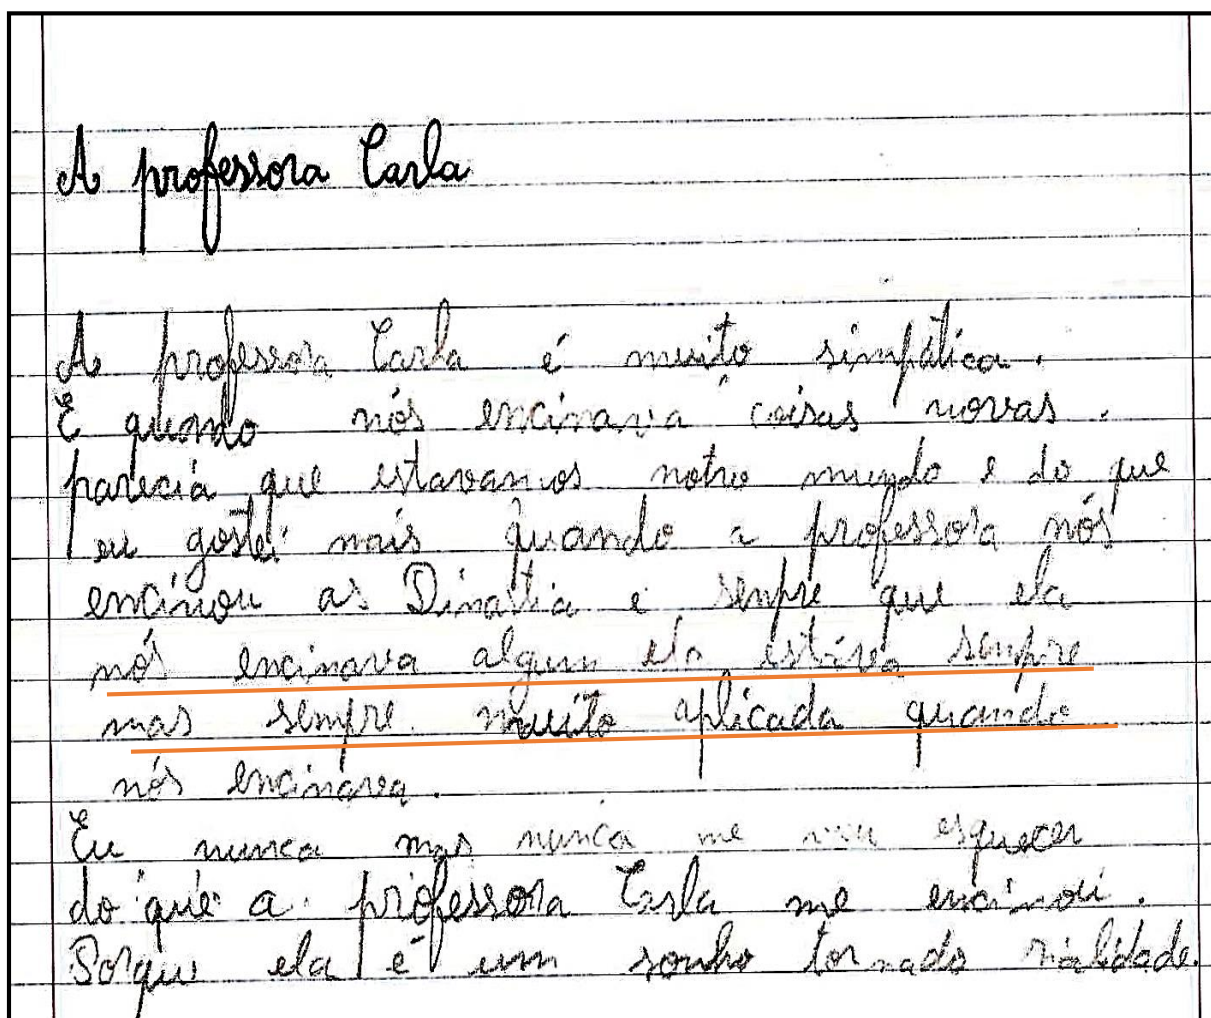 A professora Carla
A professora Carla é muito simpática.
E quando nós encinava coisas novas.
parecia que estavamos notro mundo e do que
eu gostei mais quando a professora nós
encinou as Dinastia e senpre que ela
nós encinava algun ela estáva sempre
mas sempre muito aplicada quando
nós encinava.
Eu nunca mas nunca me vou esquecer
do que a professora Carla me encinou.
Porque ela é um sonho tornado rialidade.